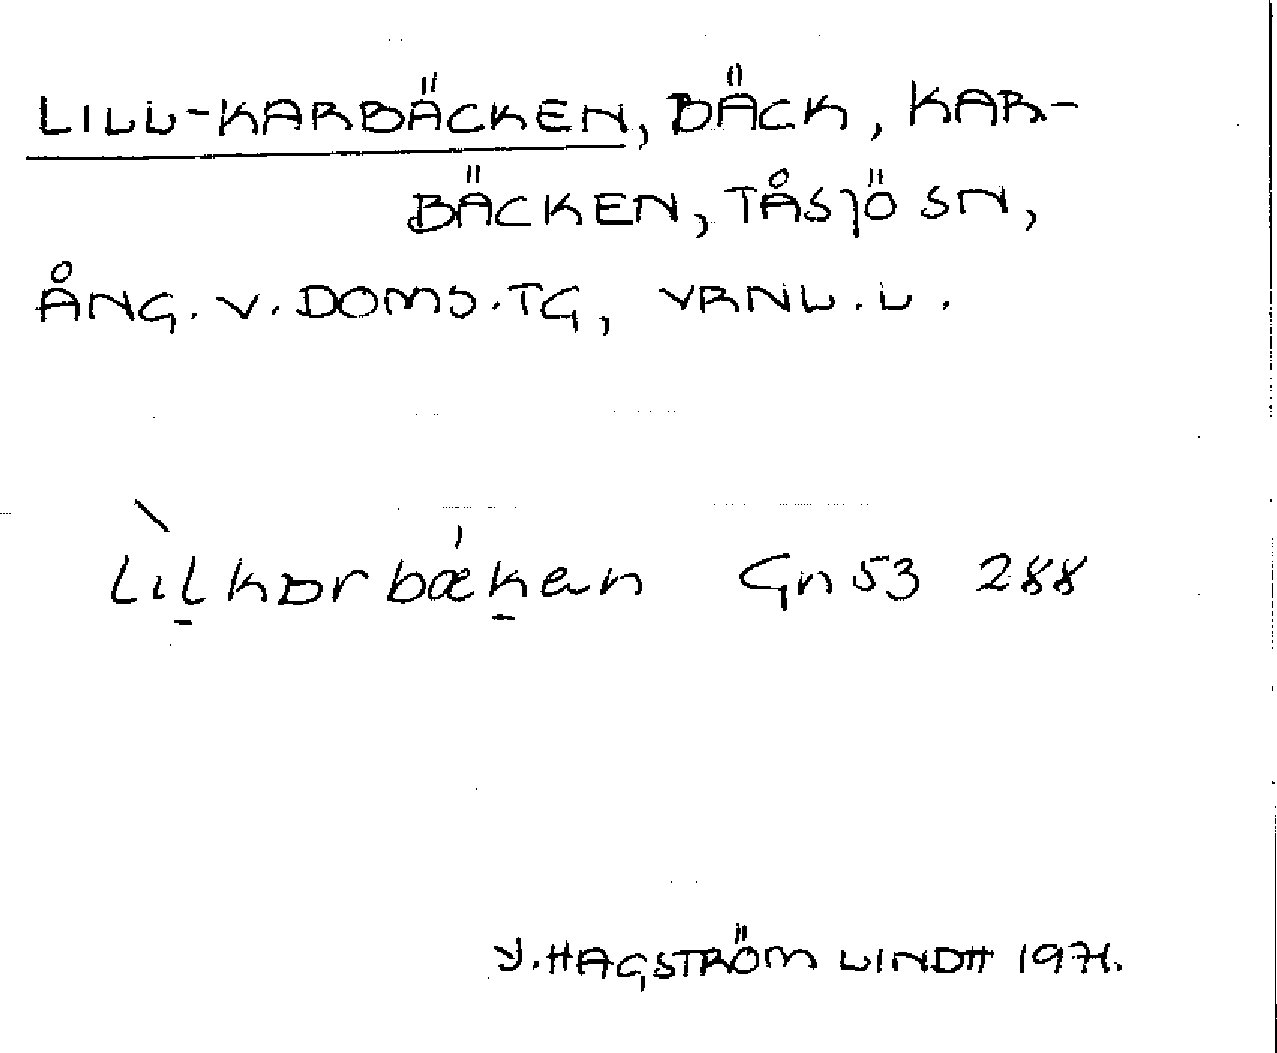 LILL-KARBÄCKEN, BÄCK, KAR-
BÄCKEN, TÅSJÖ SN,
ÅNG. V. DOMS. TG, VRNL. L.
Lìlkɒrbækən Gn 53 288
Y. HAGSTRÖM LINDH 1971.